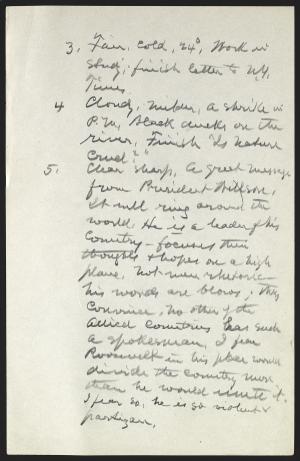 3. Fair, cold, 24°, Work in
study; finish letter to N.Y.
Times.
4 Cloudy, milder, a shrike in
P.M. Black ducks on the
river, Finish "Is Nature
Cruel?"
5. Clear sharp, A great message
from President Willson,
It will ring around the
world. He is a leader of his
Country - focuses their
thoughts & hopes on a high
plane, not mere rhetoric -
his words are blows; they
Convince, no other of the
Allied Countries has such
a spokesman, I fear
Roosevelt in his place would
divide the country more
than he would unite it.
I fear so, he is so violent &
partizan.